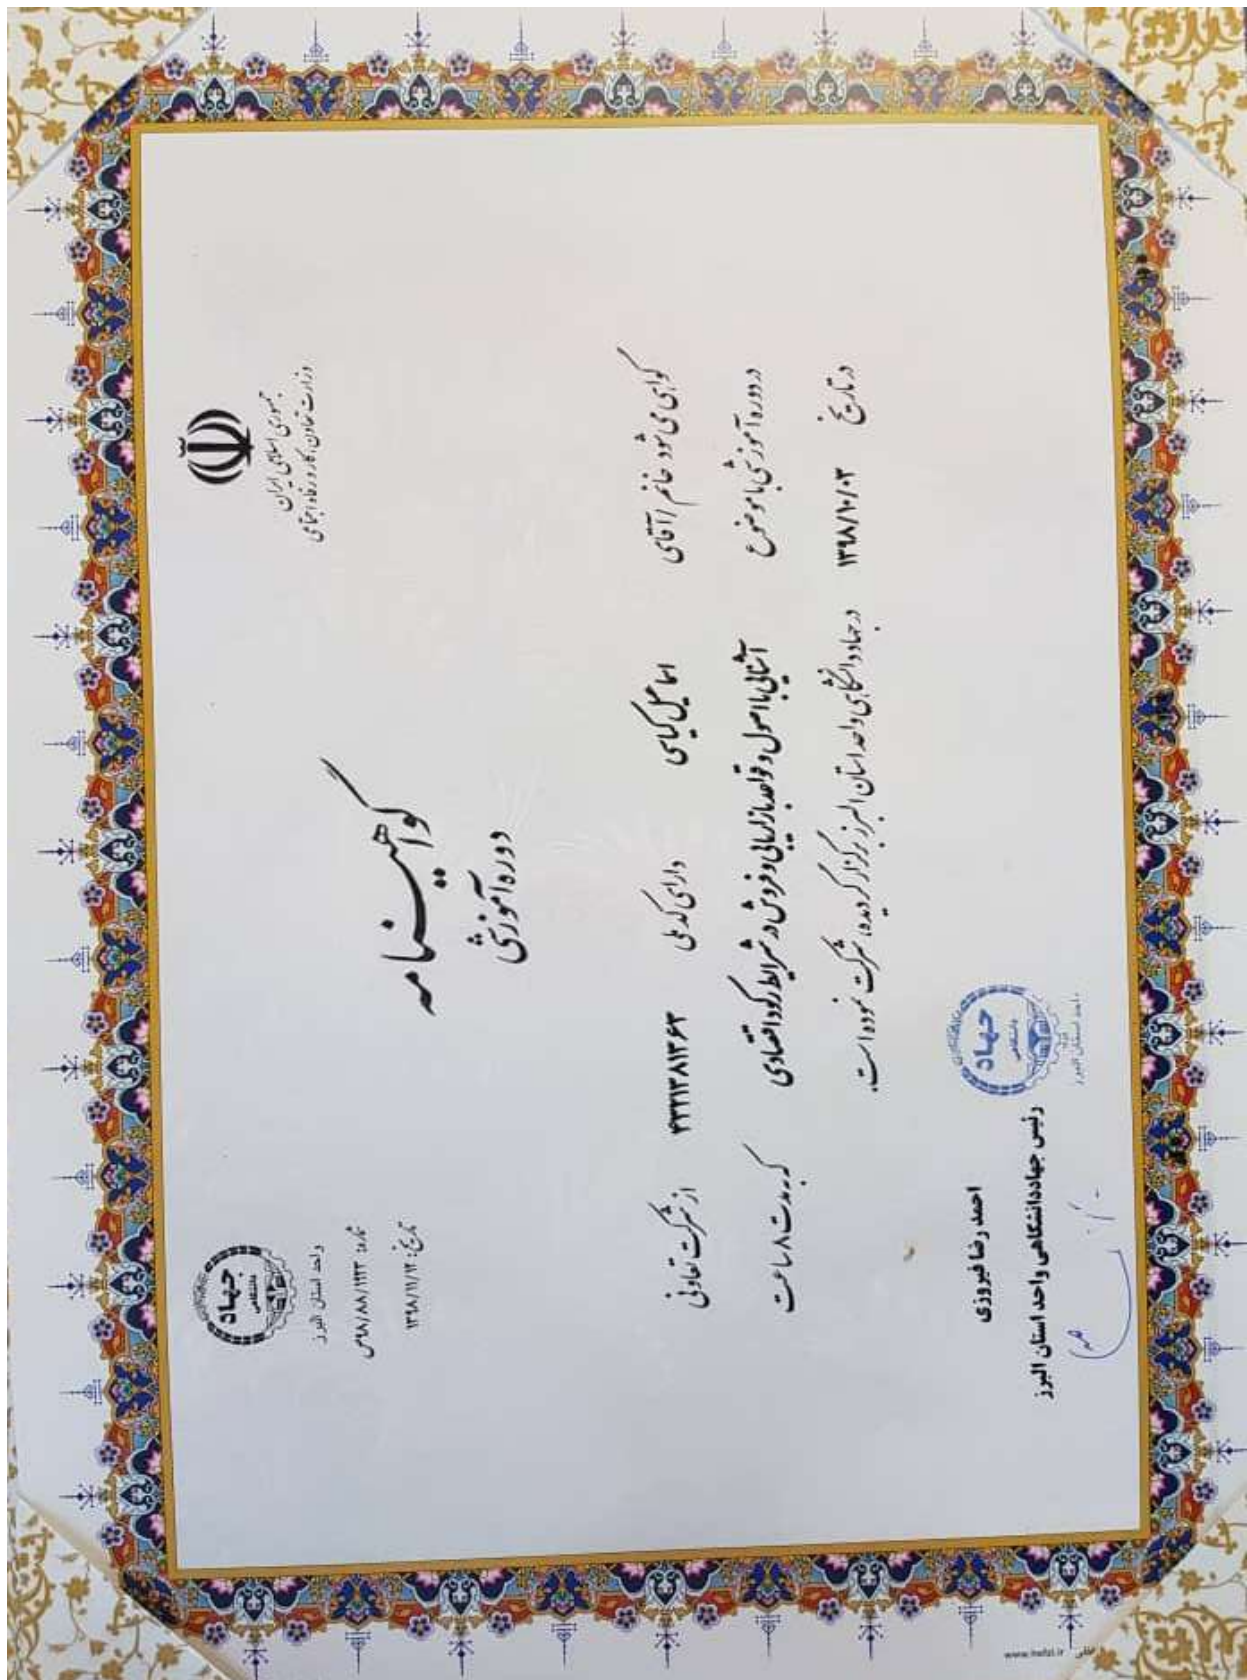 جمهوری اسلامی ایران
وزارت تعاون، کار و رفاه اجتماعی
جهاد
دانشگاهی
واحد استان البرز
شماره: ۹۸/۸۸/۱۹۲۳/ص
تاریخ: ۱۳۹۸/۱۱/۱۲
گواهینامه
دوره آموزشی
گواهی می شود خانم / آقای اسماعیل کیاسی دارای کد ملی ۴۳۲۱۳۸۱۳۶۳ از شرکت تعاونی
در دوره آموزشی با موضوع آشنایی با اصول و قواعد بازاریابی و فروش در شرایط رکود اقتصادی که به مدت ۸ ساعت
در تاریخ ۱۳۹۸/۱۰/۰۳ در جهاد دانشگاهی واحد استان البرز برگزار گردیده، شرکت نموده است.
جهاد
دانشگاهی
واحد استان البرز
احمد رضا فیروزی
رئیس جهاددانشگاهی واحد استان البرز
www.hefzi.ir